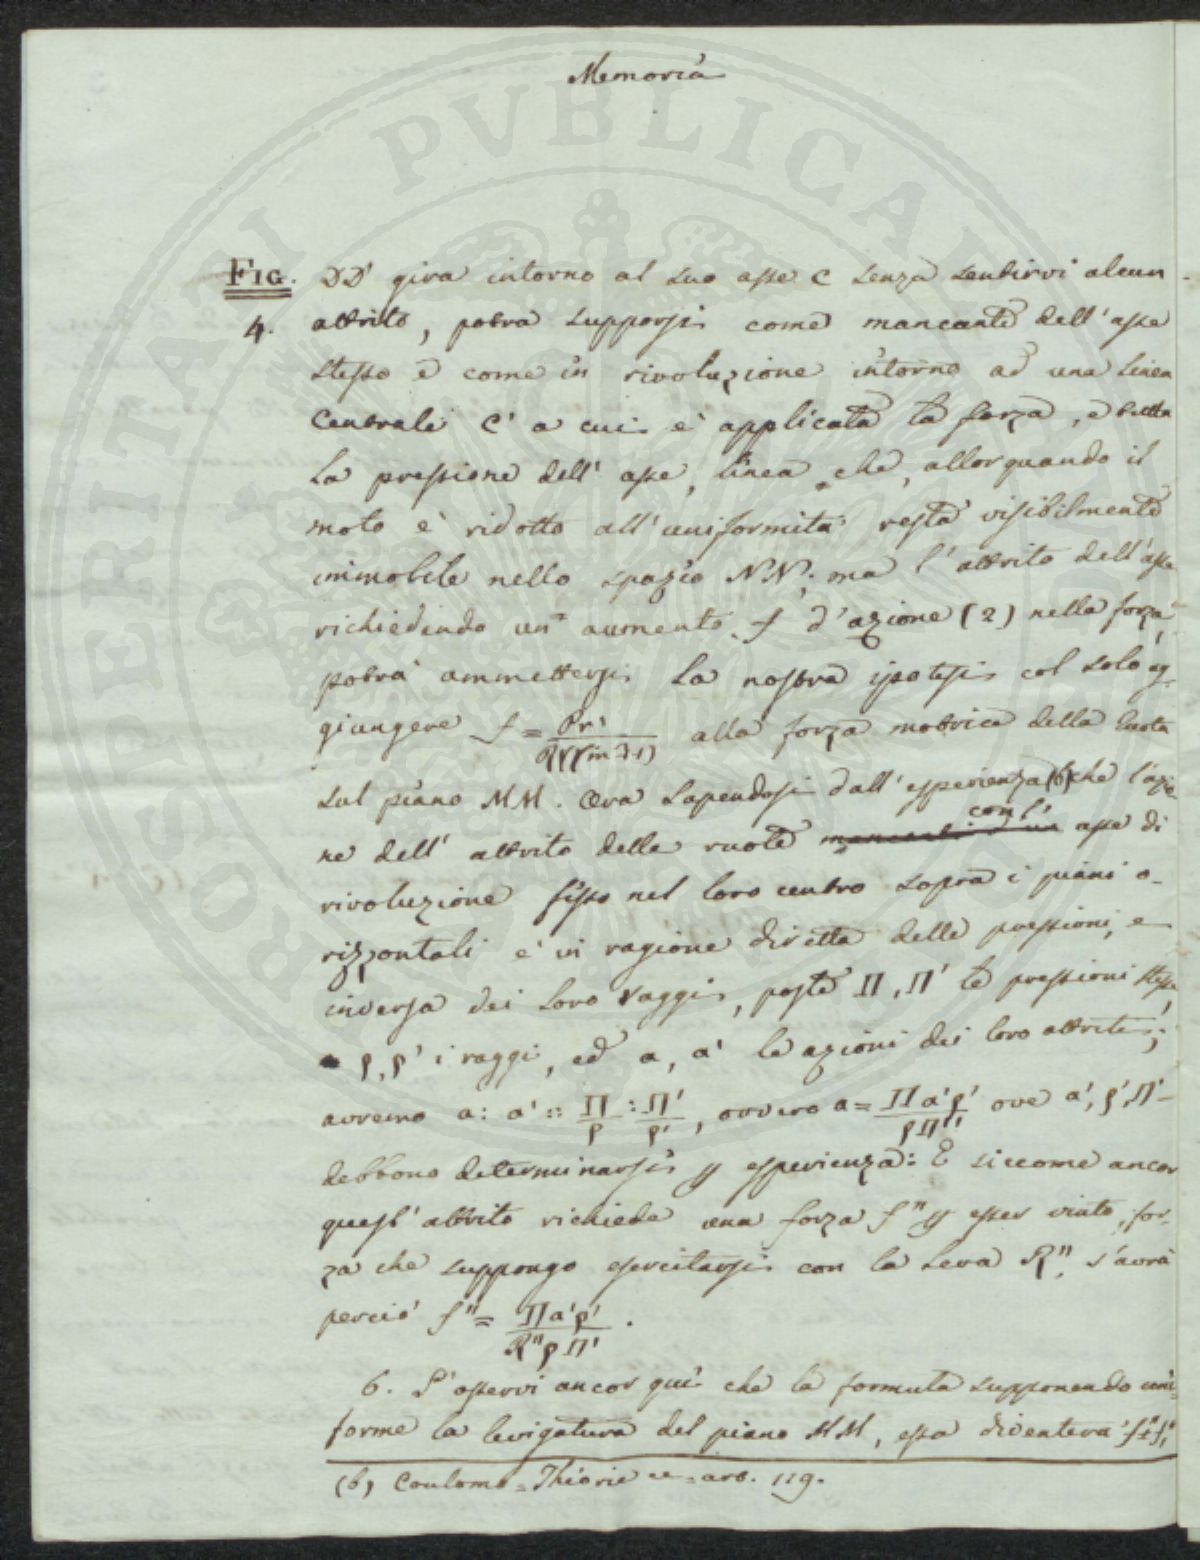 Memoria
FIG. DD' gira intorno al suo asse C senza sentirvi alcun
4. attrito, potrà supporsi come mancante dell'asse
stesso e come in rivoluzione intorno ad una linea
Centrale C' a cui è applicata la forza, e tutta
la pressione dell'asse, linea che, allorquando il
moto è ridotto all'uniformità resta visibilmente
immobile nello spazio NN; ma l'attrito dell'asse
richiedendo un aumento f d'azione (2) nella forza,
potrà ammettersi la nostra ipotesi col solo ag-
giungere f = alla forza motrice della Ruota
sul piano MM. Ora sapendosi dall'esperienza (b) che l'azio
ne dell'attrito delle ruote con l' asse di
rivoluzione fisso nel loro centro sopra i piani o-
rizzontali è in ragione diretta delle pressioni, e
inversa dei loro raggi, poste Π, Π' le pressioni stesse,
ρ, ρ' i raggi, ed a, a' le azioni dei loro attriti;
avremo a : a' :: Π/ρ : Π'/ρ', ovvero a = Πa'ρ'/ρΠ' ove a', ρ', Π'
debbono determinarsi p esperienza: E siccome ancor
quest'attrito richiede una forza f" p esser vinto, for-
za che suppongo esercitarsi con la leva R", s'avrà
perciò f" = Πa'ρ'/R"ρΠ'.
6. S'osservi ancor quì che la formula supponendo uni-
forme la levigatura del piano MM, essa diventerà
(b) Coulomb = Théorie = art. 119.